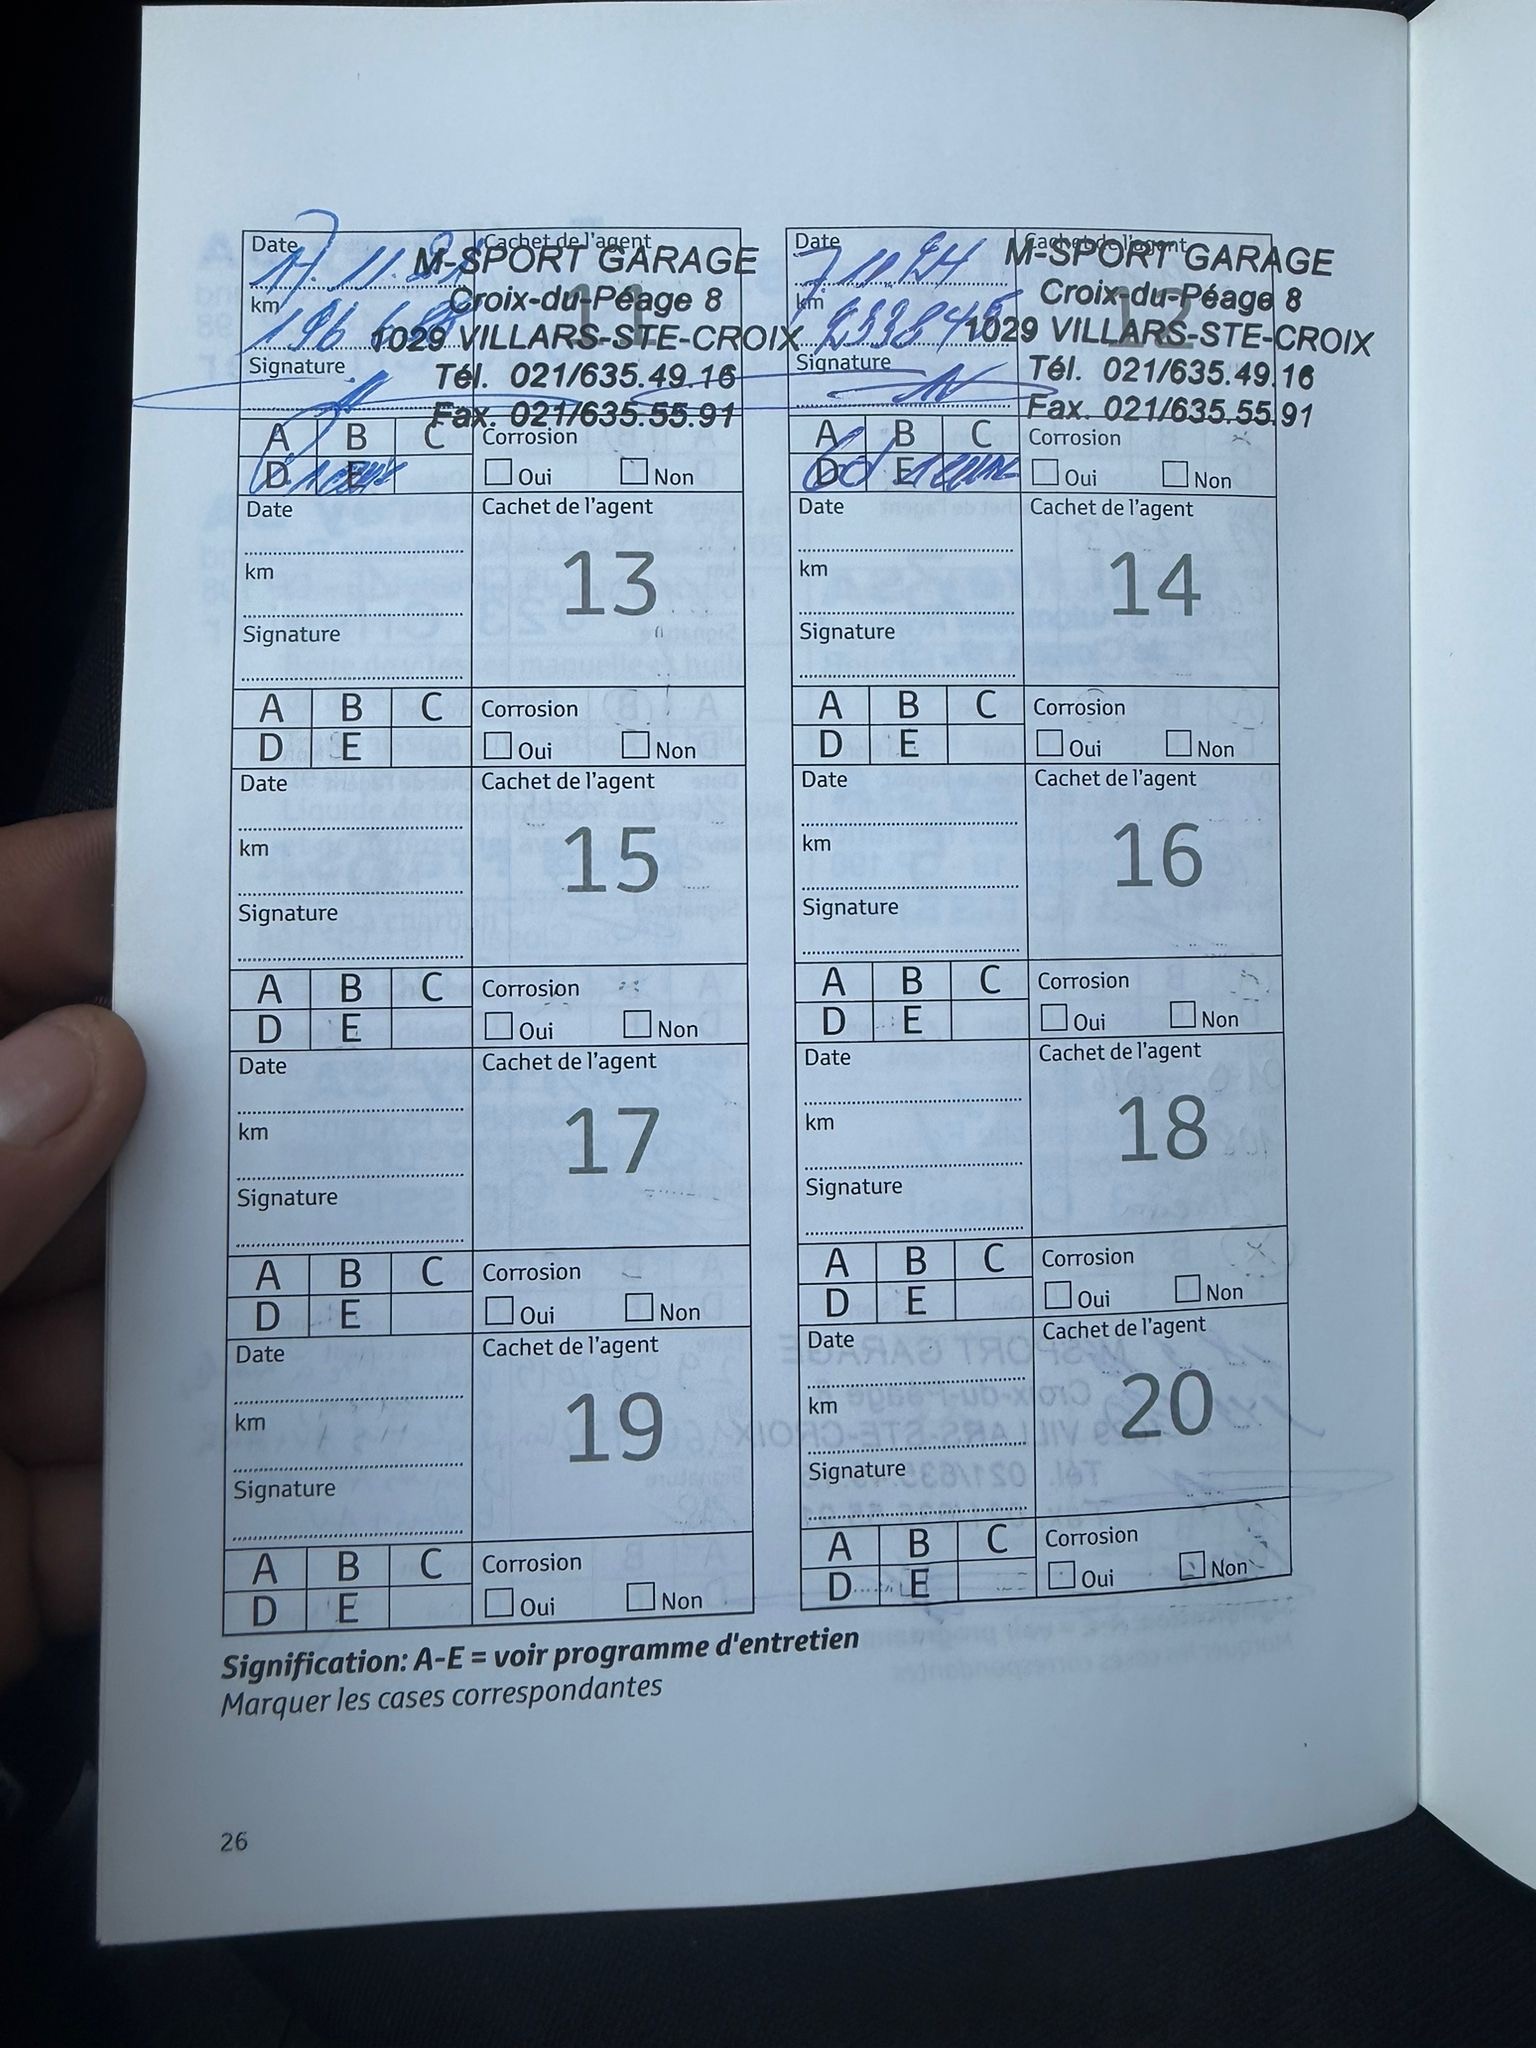 Date
Cachet de l'agent
17.11.
M-SPORT GARAGE
km
11
Croix-du-Péage 8
196
1029 VILLARS-STE-CROIX
Signature
Tél. 021/635.49.16
Fax. 021/635.55.91
A B C Corrosion
D E Oui Non
Date
Cachet de l'agent
7.11.24
M-SPORT GARAGE
km
12
Croix-du-Péage 8
233845
1029 VILLARS-STE-CROIX
Signature
Tél. 021/635.49.16
Fax. 021/635.55.91
A B C Corrosion
D E Oui Non
Date Cachet de l'agent
km 13
Signature
A B C Corrosion
D E Oui Non
Date Cachet de l'agent
km 14
Signature
A B C Corrosion
D E Oui Non
Date Cachet de l'agent
km 15
Signature
A B C Corrosion
D E Oui Non
Date Cachet de l'agent
km 16
Signature
A B C Corrosion
D E Oui Non
Date Cachet de l'agent
km 17
Signature
A B C Corrosion
D E Oui Non
Date Cachet de l'agent
km 18
Signature
A B C Corrosion
D E Oui Non
Date Cachet de l'agent
km 19
Signature
A B C Corrosion
D E Oui Non
Date Cachet de l'agent
km 20
Signature
A B C Corrosion
D E Oui Non
Signification: A-E = voir programme d'entretien
Marquer les cases correspondantes
26